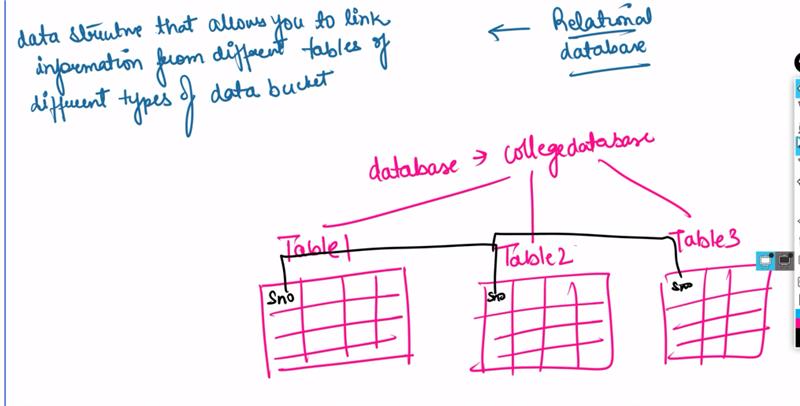 data structure that allows you to link
information from different tables of
different types of data bucket
← Relational
database
database → collegedatabase
Table1
Table2
Table3
Sno
Sno
Sno